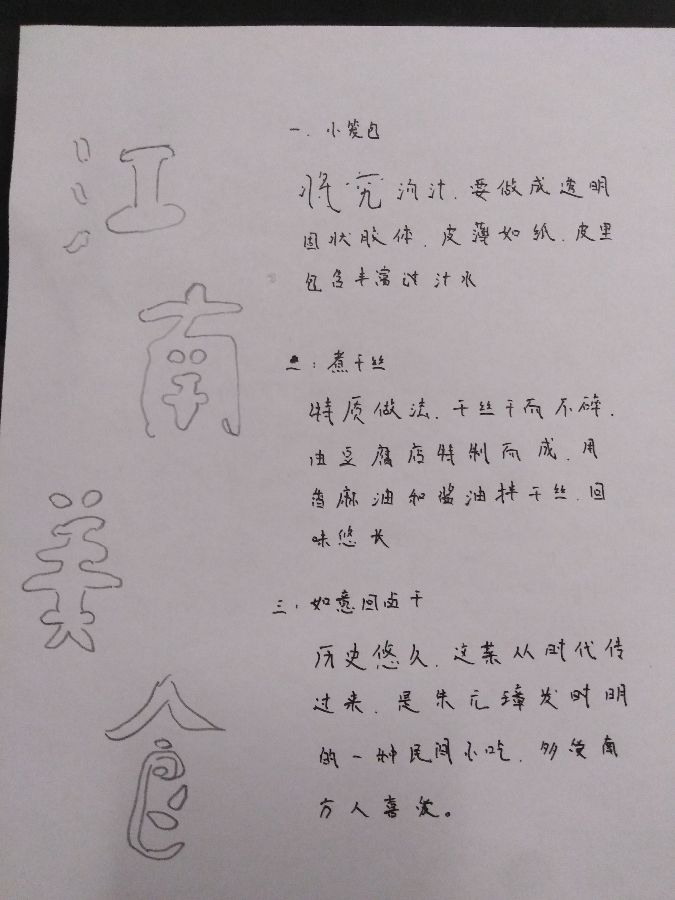 江南美食
一.小笼包
将究汤汁.要做成透明
固状胶体.皮薄如纸.皮里
包含丰富过汁水
二:煮干丝
特质做法.干丝干而不碎.
由豆腐店特制而成.用
麻油和酱油拌干丝.回
味悠长
三:如意回卤干
历史悠久.这菜从时代传
过来.是朱元璋发时明
的一种民间小吃.多受南
方人喜爱。